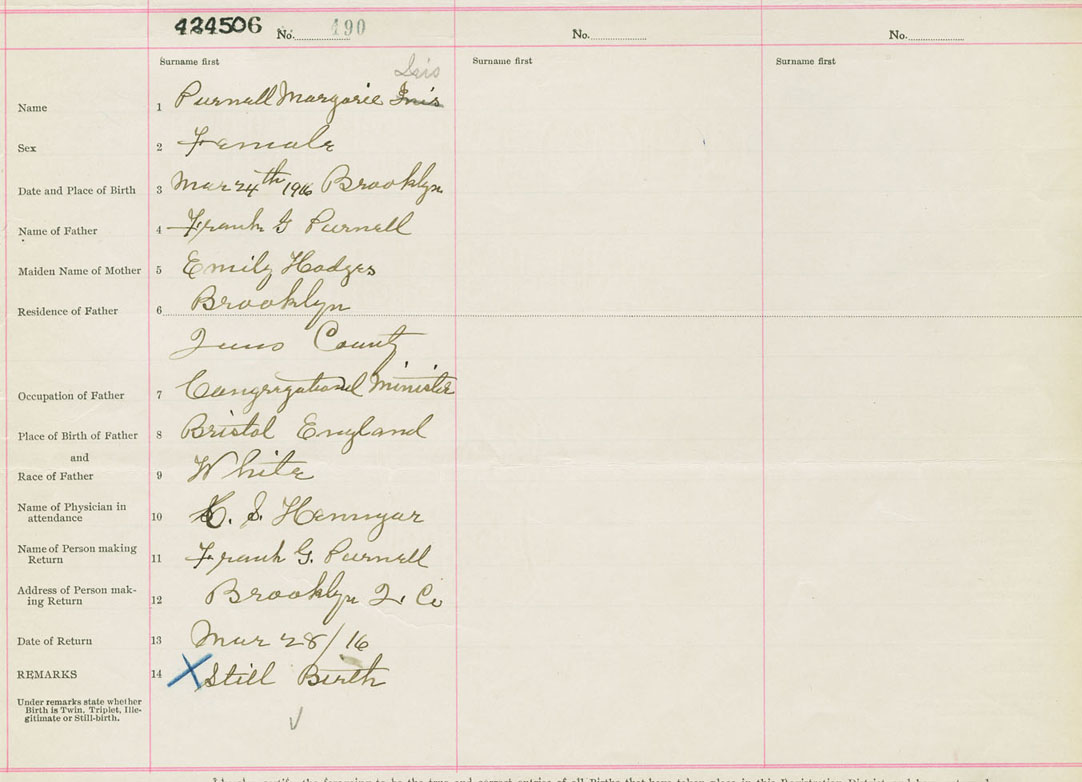 424506 No. 490 No. No.
Surname first Surname first Surname first
Iris
Name 1 Purnell Margorie Iris
Sex 2 Female
Date and Place of Birth 3 Mar 24th 1916 Brooklyn
Name of Father 4 Frank G Purnell
Maiden Name of Mother 5 Emily Hodges
Residence of Father 6 Brooklyn
County
Occupation of Father 7 Congregational Minister
Place of Birth of Father 8 Bristol England
and
Race of Father 9 White
Name of Physician in
attendance 10 S.
Name of Person making
Return 11 Frank G. Purnell
Address of Person mak-
ing Return 12 Brooklyn Q. Co
Date of Return 13 Mar 28/16
REMARKS 14 X Still Birth
Under remarks state whether
Birth is Twin, Triplet, Ille-
gitimate or Still-birth.